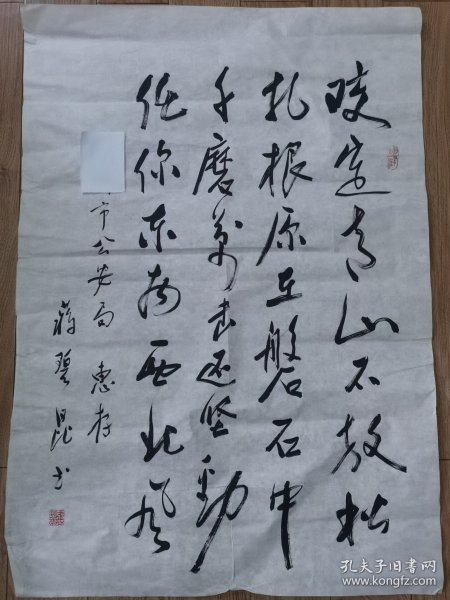 咬定青山不放松
扎根原在磐石中
千磨萬击还坚劲
任你东南西北风
市公安局 惠存
蒋碧昆书
孔夫子旧书网
www.kongfz.com